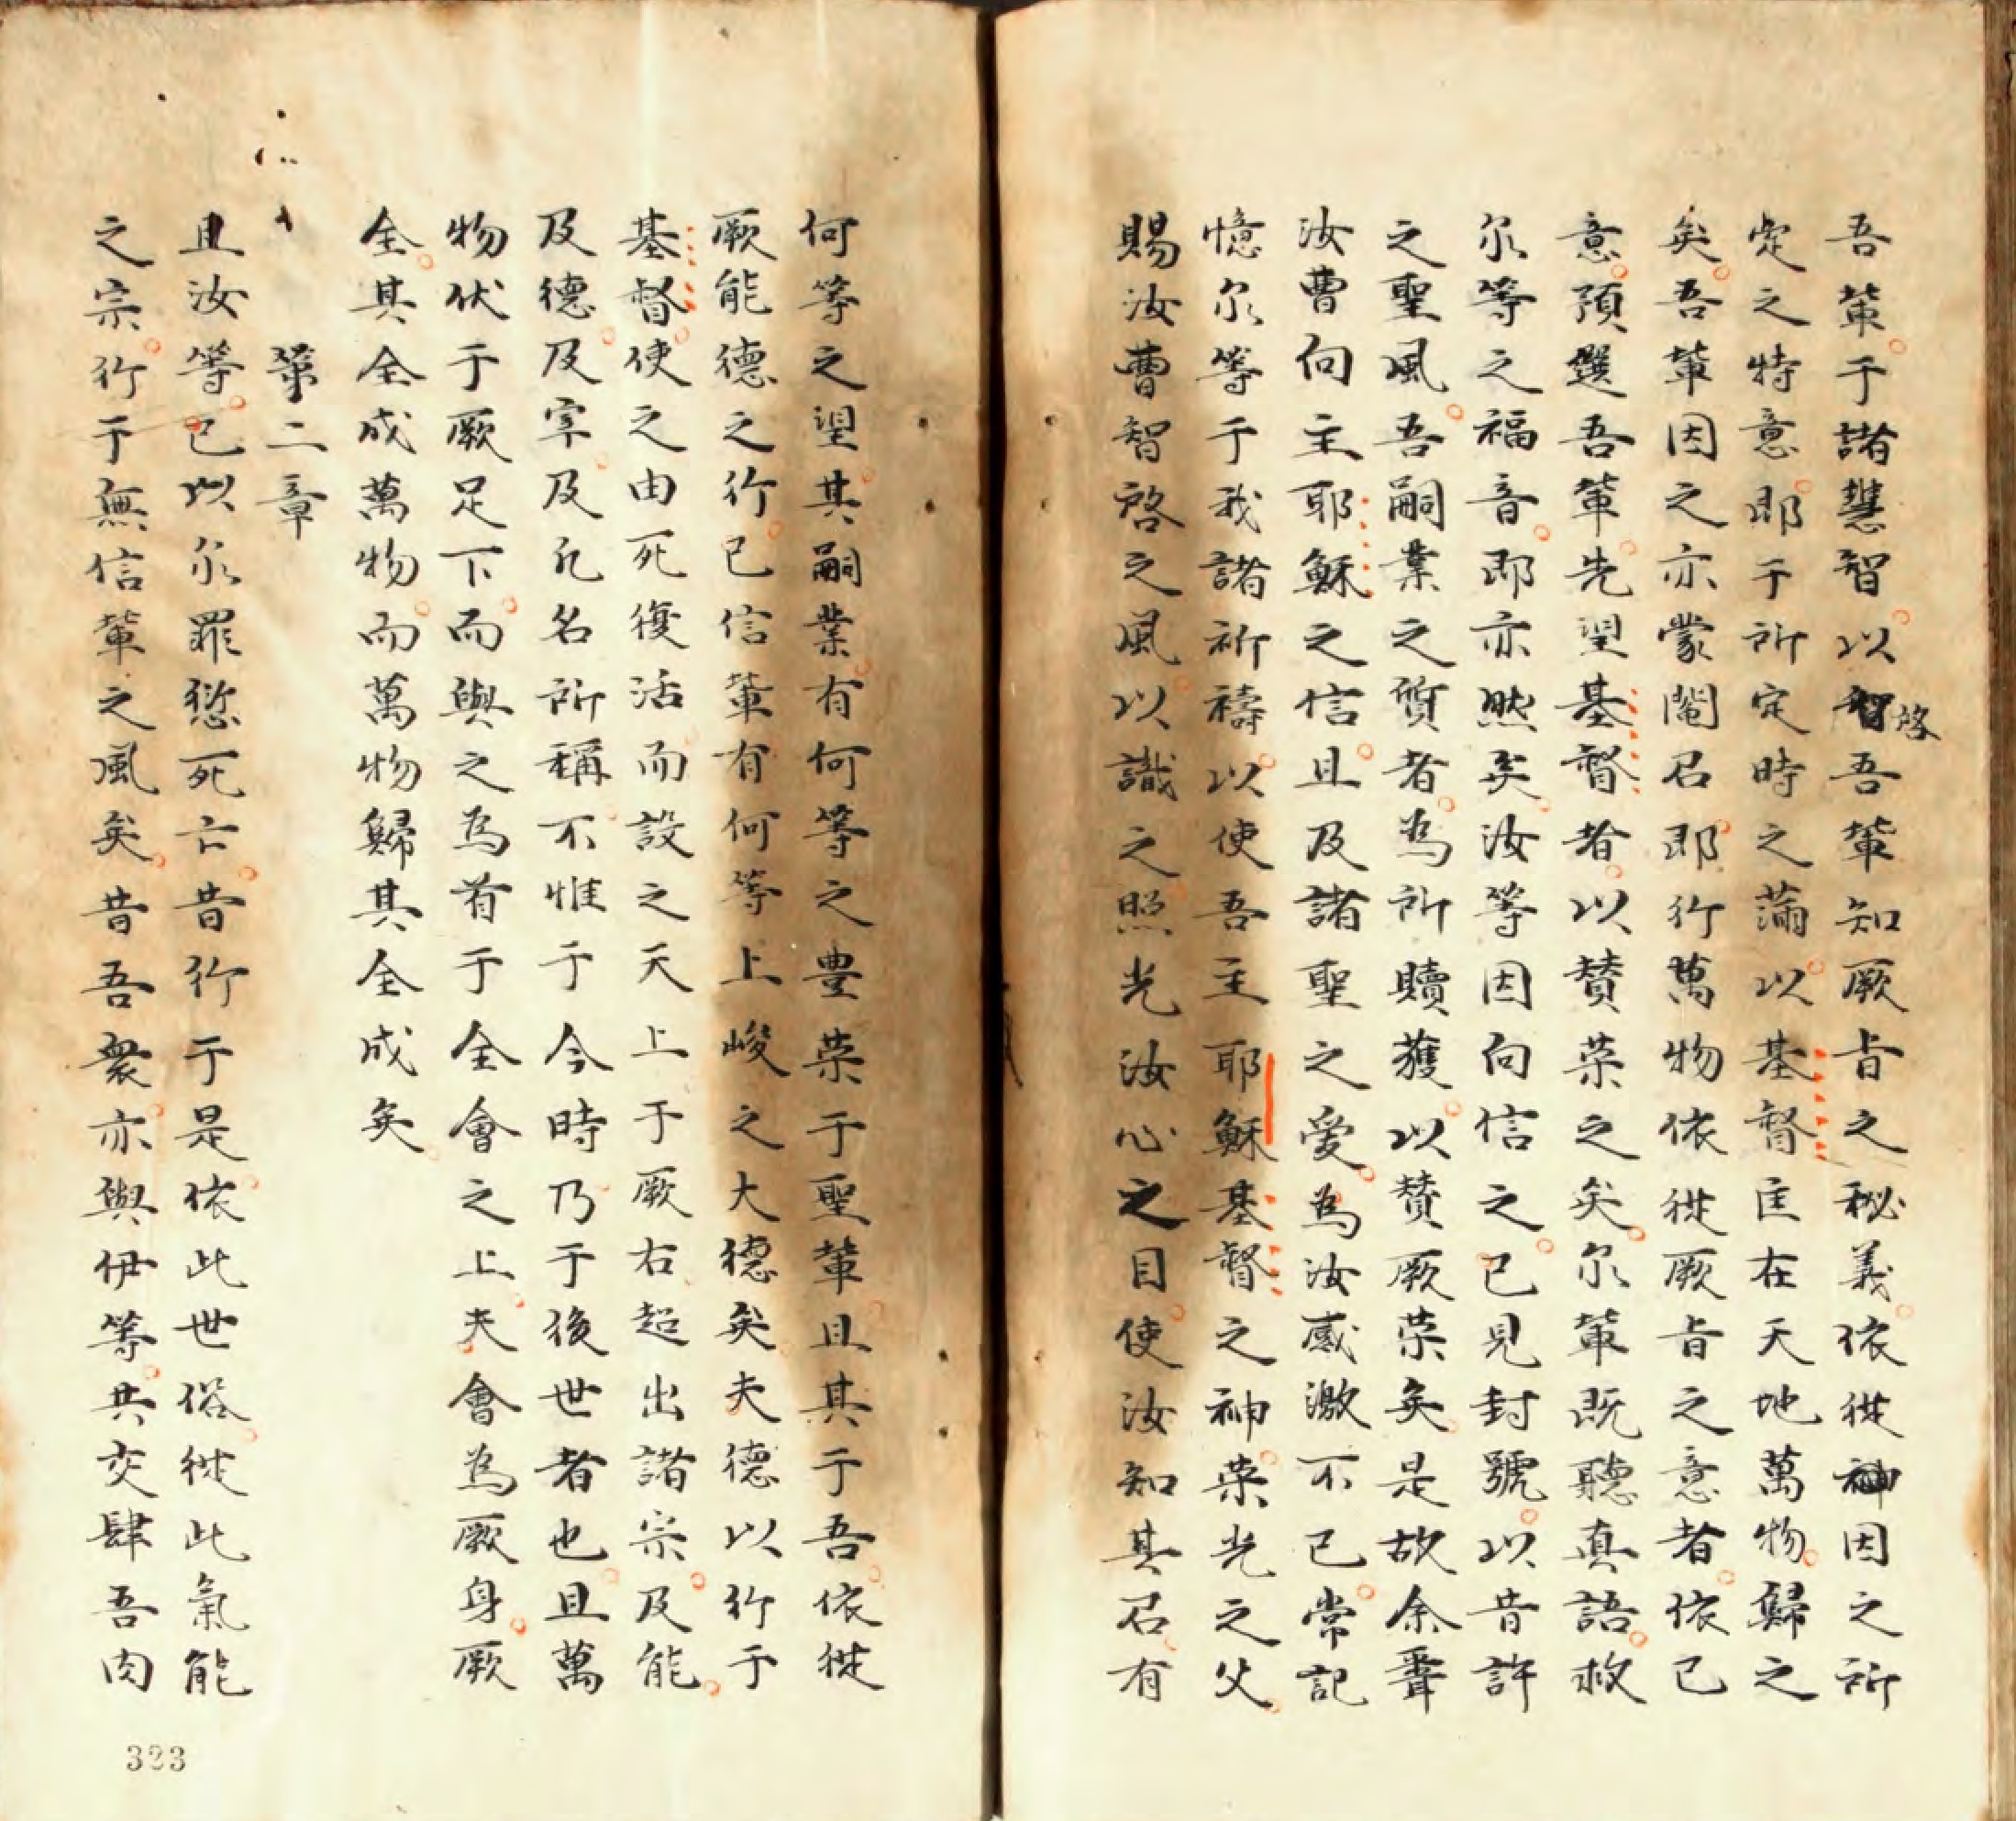 吾輩于諸慧智以智啓吾輩知厥旨之秘義依從神因之所
定之特意即于所定時之滿以基督匡在天地萬物歸之
矣吾輩因之亦蒙鬮召即行萬物依從厥旨之意者依己
意預選吾輩先望基督者以賛荣之矣尔輩既聽真語救
尔等之福音即亦然矣汝等因向信之已見封號以昔許
之聖風吾嗣業之質者為所贖獲以賛厥荣矣是故余聋
汝曹向主耶穌之信且及諸聖之愛為汝感激不已常記
憶尔等于我諸祈禱以使吾主耶穌基督之神荣光之父
賜汝曹智啓之風以識之照光汝心之目使汝知其召有
何等之望其嗣業有何等之豊荣于聖輩且其于吾依從
厥能德之行已信輩有何等上峻之大德矣夫德以行于
基督使之由死復活而設之天上于厥右超出諸宗及能
及德及宰及凡名所稱不惟于今時乃于後世者也且萬
物伏于厥足下而與之為首于全會之上夫會為厥身厥
全其全成萬物而萬物歸其全成矣
第二章
且汝等已以尔罪愆死亡昔行于是依此世俗從此氣能
之宗行于無信輩之風矣昔吾衆亦與伊等共交肆吾肉
323